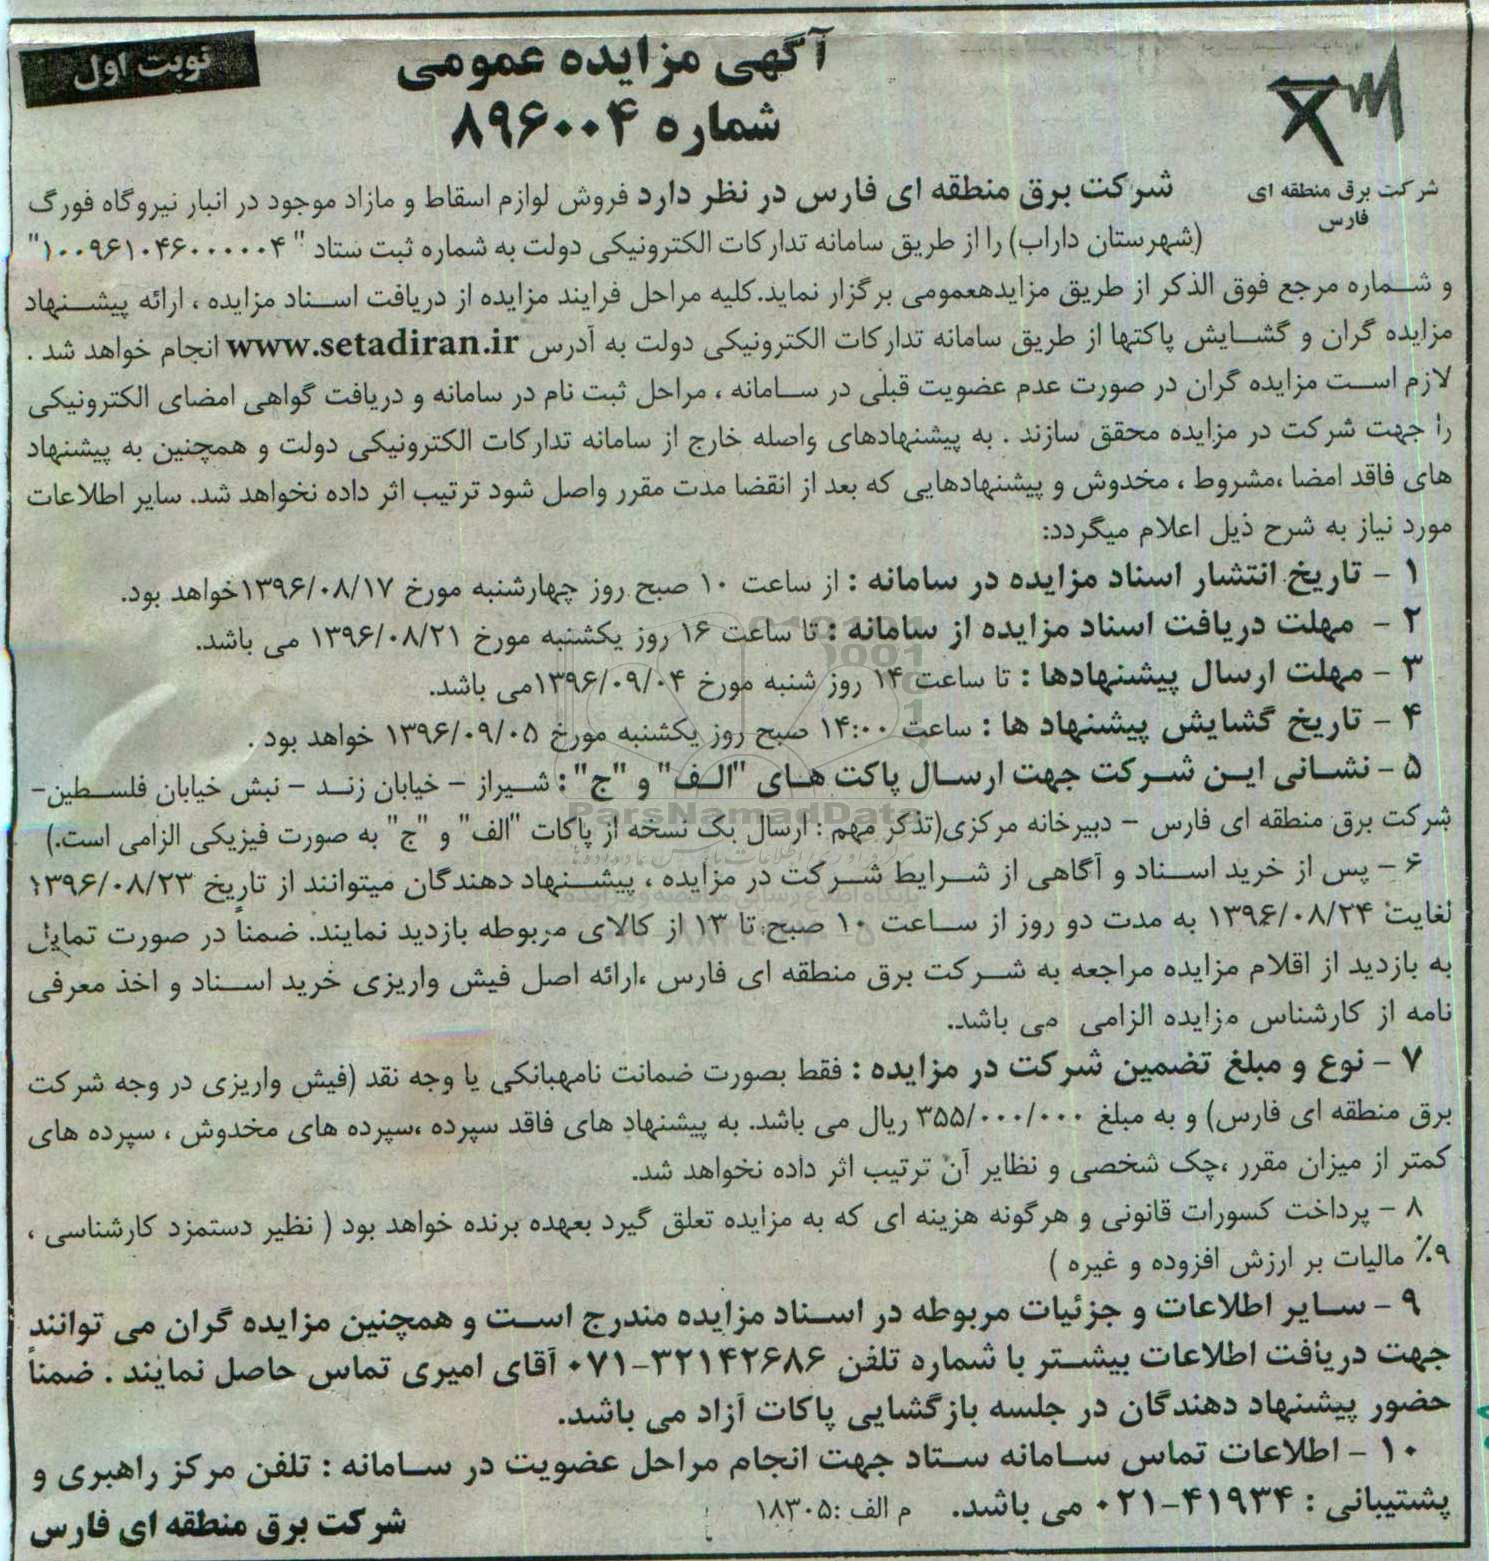 نوبت اول
آگهی مزایده عمومی
شماره ۸۹۶۰۰۴
شرکت برق منطقه ای
فارس
شرکت برق منطقه ای فارس در نظر دارد فروش لوازم اسقاط و مازاد موجود در انبار نیروگاه فورگ
(شهرستان داراب) را از طریق سامانه تدارکات الکترونیکی دولت به شماره ثبت ستاد " ۱۰۰۹۶۱۰۴۶۰۰۰۰۰۴"
و شماره مرجع فوق الذکر از طریق مزایدهعمومی برگزار نماید.کلیه مراحل فرایند مزایده از دریافت اسناد مزایده ، ارائه پیشنهاد
مزایده گران و گشایش پاکتها از طریق سامانه تدارکات الکترونیکی دولت به آدرس www.setadiran.ir انجام خواهد شد .
لازم است مزایده گران در صورت عدم عضویت قبلی در سامانه ، مراحل ثبت نام در سامانه و دریافت گواهی امضای الکترونیکی
را جهت شرکت در مزایده محقق سازند . به پیشنهادهای واصله خارج از سامانه تدارکات الکترونیکی دولت و همچنین به پیشنهاد
های فاقد امضا ،مشروط ، مخدوش و پیشنهادهایی که بعد از انقضا مدت مقرر واصل شود ترتیب اثر داده نخواهد شد. سایر اطلاعات
مورد نیاز به شرح ذیل اعلام میگردد:
۱ - تاریخ انتشار اسناد مزایده در سامانه : از ساعت ۱۰ صبح روز چهارشنبه مورخ ۱۳۹۶/۰۸/۱۷خواهد بود.
۲ - مهلت دریافت اسناد مزایده از سامانه : تا ساعت ۱۶ روز یکشنبه مورخ ۱۳۹۶/۰۸/۲۱ می باشد.
۳ - مهلت ارسال پیشنهادها : تا ساعت ۱۴ روز شنبه مورخ ۱۳۹۶/۰۹/۰۴می باشد.
۴ - تاریخ گشایش پیشنهاد ها : ساعت ۱۴:۰۰ صبح روز یکشنبه مورخ ۱۳۹۶/۰۹/۰۵ خواهد بود .
۵ - نشانی این شرکت جهت ارسال پاکت های "الف" و "ج" : شیراز - خیابان زند - نبش خیابان فلسطین-
شرکت برق منطقه ای فارس - دبیرخانه مرکزی(تذکر مهم : ارسال یک نسخه از پاکات "الف" و "ج" به صورت فیزیکی الزامی است.)
ParsNamadData
۶ - پس از خرید اسناد و آگاهی از شرایط شرکت در مزایده ، پیشنهاد دهندگان میتوانند از تاریخ ۱۳۹۶/۰۸/۲۳
لغایت ۱۳۹۶/۰۸/۲۴ به مدت دو روز از ساعت ۱۰ صبح تا ۱۳ از کالای مربوطه بازدید نمایند. ضمناً در صورت تمایل
به بازدید از اقلام مزایده مراجعه به شرکت برق منطقه ای فارس ،ارائه اصل فیش واریزی خرید اسناد و اخذ معرفی
نامه از کارشناس مزایده الزامی می باشد.
۷ - نوع و مبلغ تضمین شرکت در مزایده : فقط بصورت ضمانت نامهبانکی یا وجه نقد (فیش واریزی در وجه شرکت
برق منطقه ای فارس) و به مبلغ ۳۵۵/۰۰۰/۰۰۰ ریال می باشد. به پیشنهاد های فاقد سپرده ،سپرده های مخدوش ، سپرده های
کمتر از میزان مقرر ،چک شخصی و نظایر آن ترتیب اثر داده نخواهد شد.
۸ - پرداخت کسورات قانونی و هرگونه هزینه ای که به مزایده تعلق گیرد بعهده برنده خواهد بود ( نظیر دستمزد کارشناسی ،
۹٪ مالیات بر ارزش افزوده و غیره )
۹ - سایر اطلاعات و جزئیات مربوطه در اسناد مزایده مندرج است و همچنین مزایده گران می توانند
جهت دریافت اطلاعات بیشتر با شماره تلفن ۳۲۱۴۲۶۸۶-۰۷۱ آقای امیری تماس حاصل نمایند . ضمناً
حضور پیشنهاد دهندگان در جلسه بازگشایی پاکات آزاد می باشد.
۱۰ - اطلاعات تماس سامانه ستاد جهت انجام مراحل عضویت در سامانه : تلفن مرکز راهبری و
پشتیبانی : ۴۱۹۳۴-۰۲۱ می باشد. م الف :۱۸۳۰۵
شرکت برق منطقه ای فارس